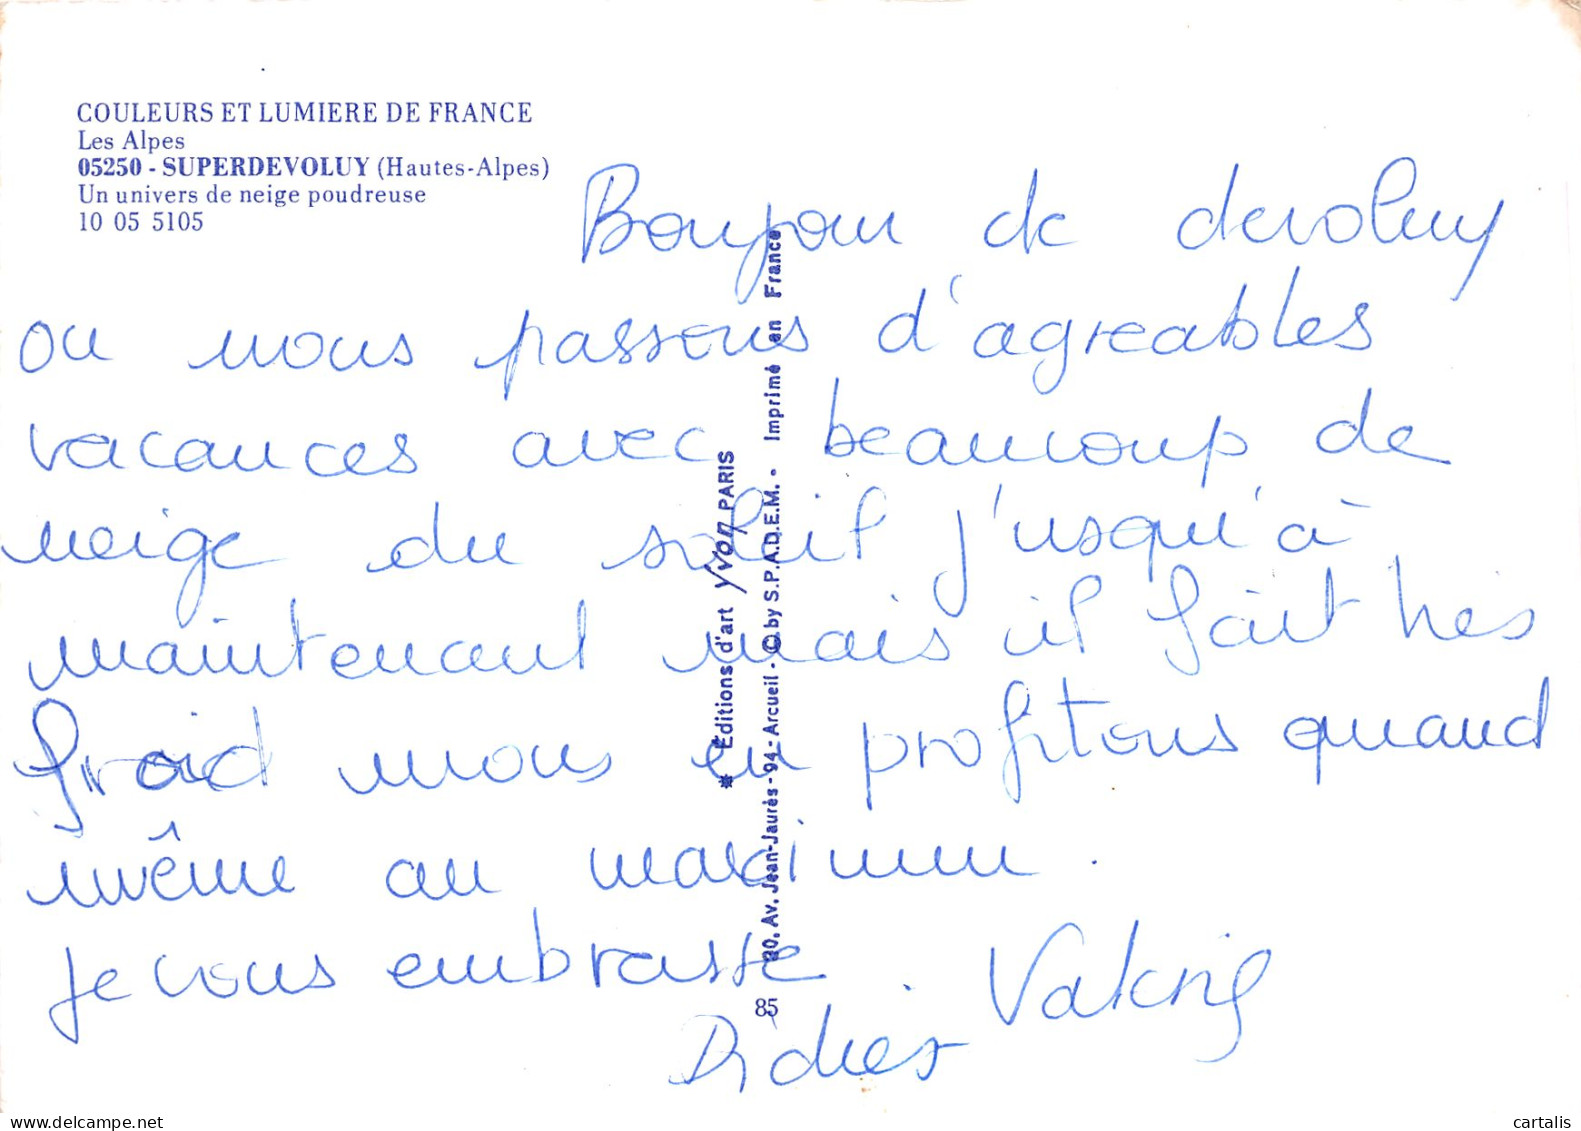 COULEURS ET LUMIERE DE FRANCE
Les Alpes
05250 - SUPERDEVOLUY (Hautes-Alpes)
Un univers de neige poudreuse
10 05 5105
Bonjour de devoluy
ou nous passons d'agreables
vacances avec beaucoup de
neige du soleil j'usqu'à
maintenant mais il fait tres
froid nous en profitons quand
même au maximum.
je vous embrasse
Didier Valerie
* Éditions d'art yvon PARIS
20, Av. Jean-Jaurès - 94 - Arcueil - © by S.P.A.D.E.M. - Imprimé en France
85
delcampe.net
cartalis